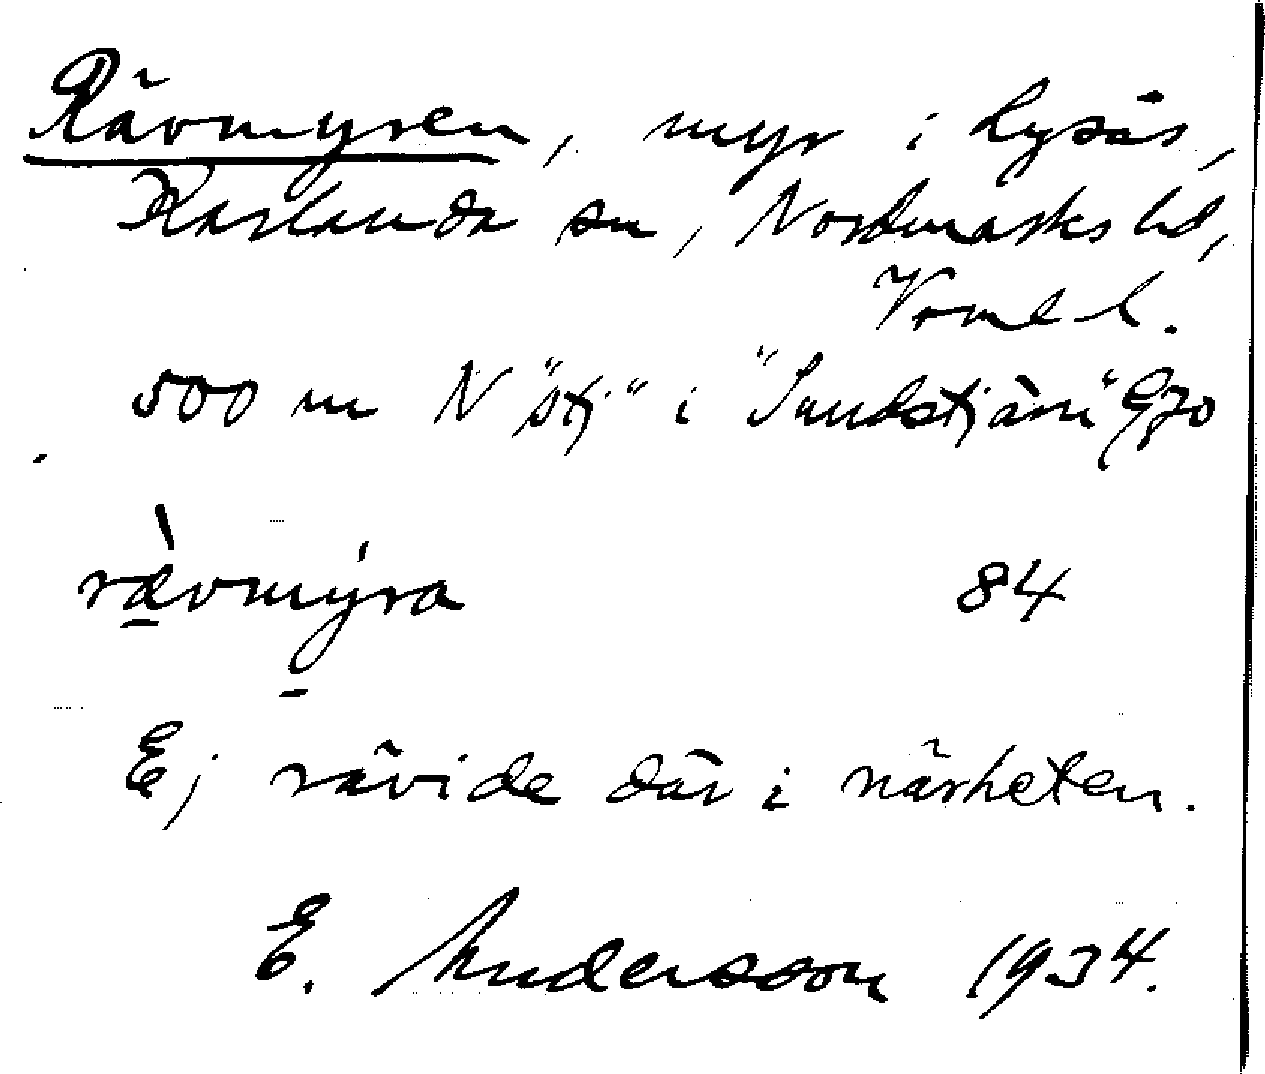 Rävmyren, myr i Lysås,
Karlanda sn, Nordmarks hd,
Vrml. l.
500 m N "stj" i "Sandstjärn" G70
rævmyra 84
Ej rävide där i närheten.
E. Andersson 1934.